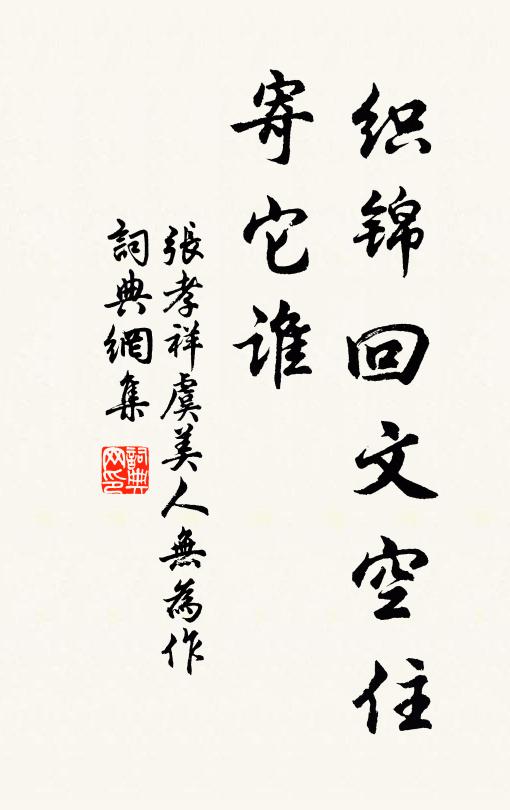 织锦回文空住
寄它谁
張孝祥虞美人無為作
詞典網集
詞典
网印